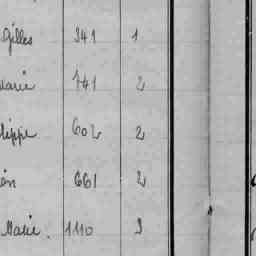 Gilles 341 1
Marie 741 2
lippe 602 2
661 2
Marie. 1110 3